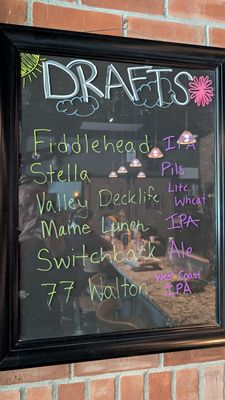 DRAFTS
Fiddlehead IPA
Stella Pils
Valley Deck life Lite Wheat
Maine Lunch IPA
Switchback Ale
77 Walton West Coast IPA